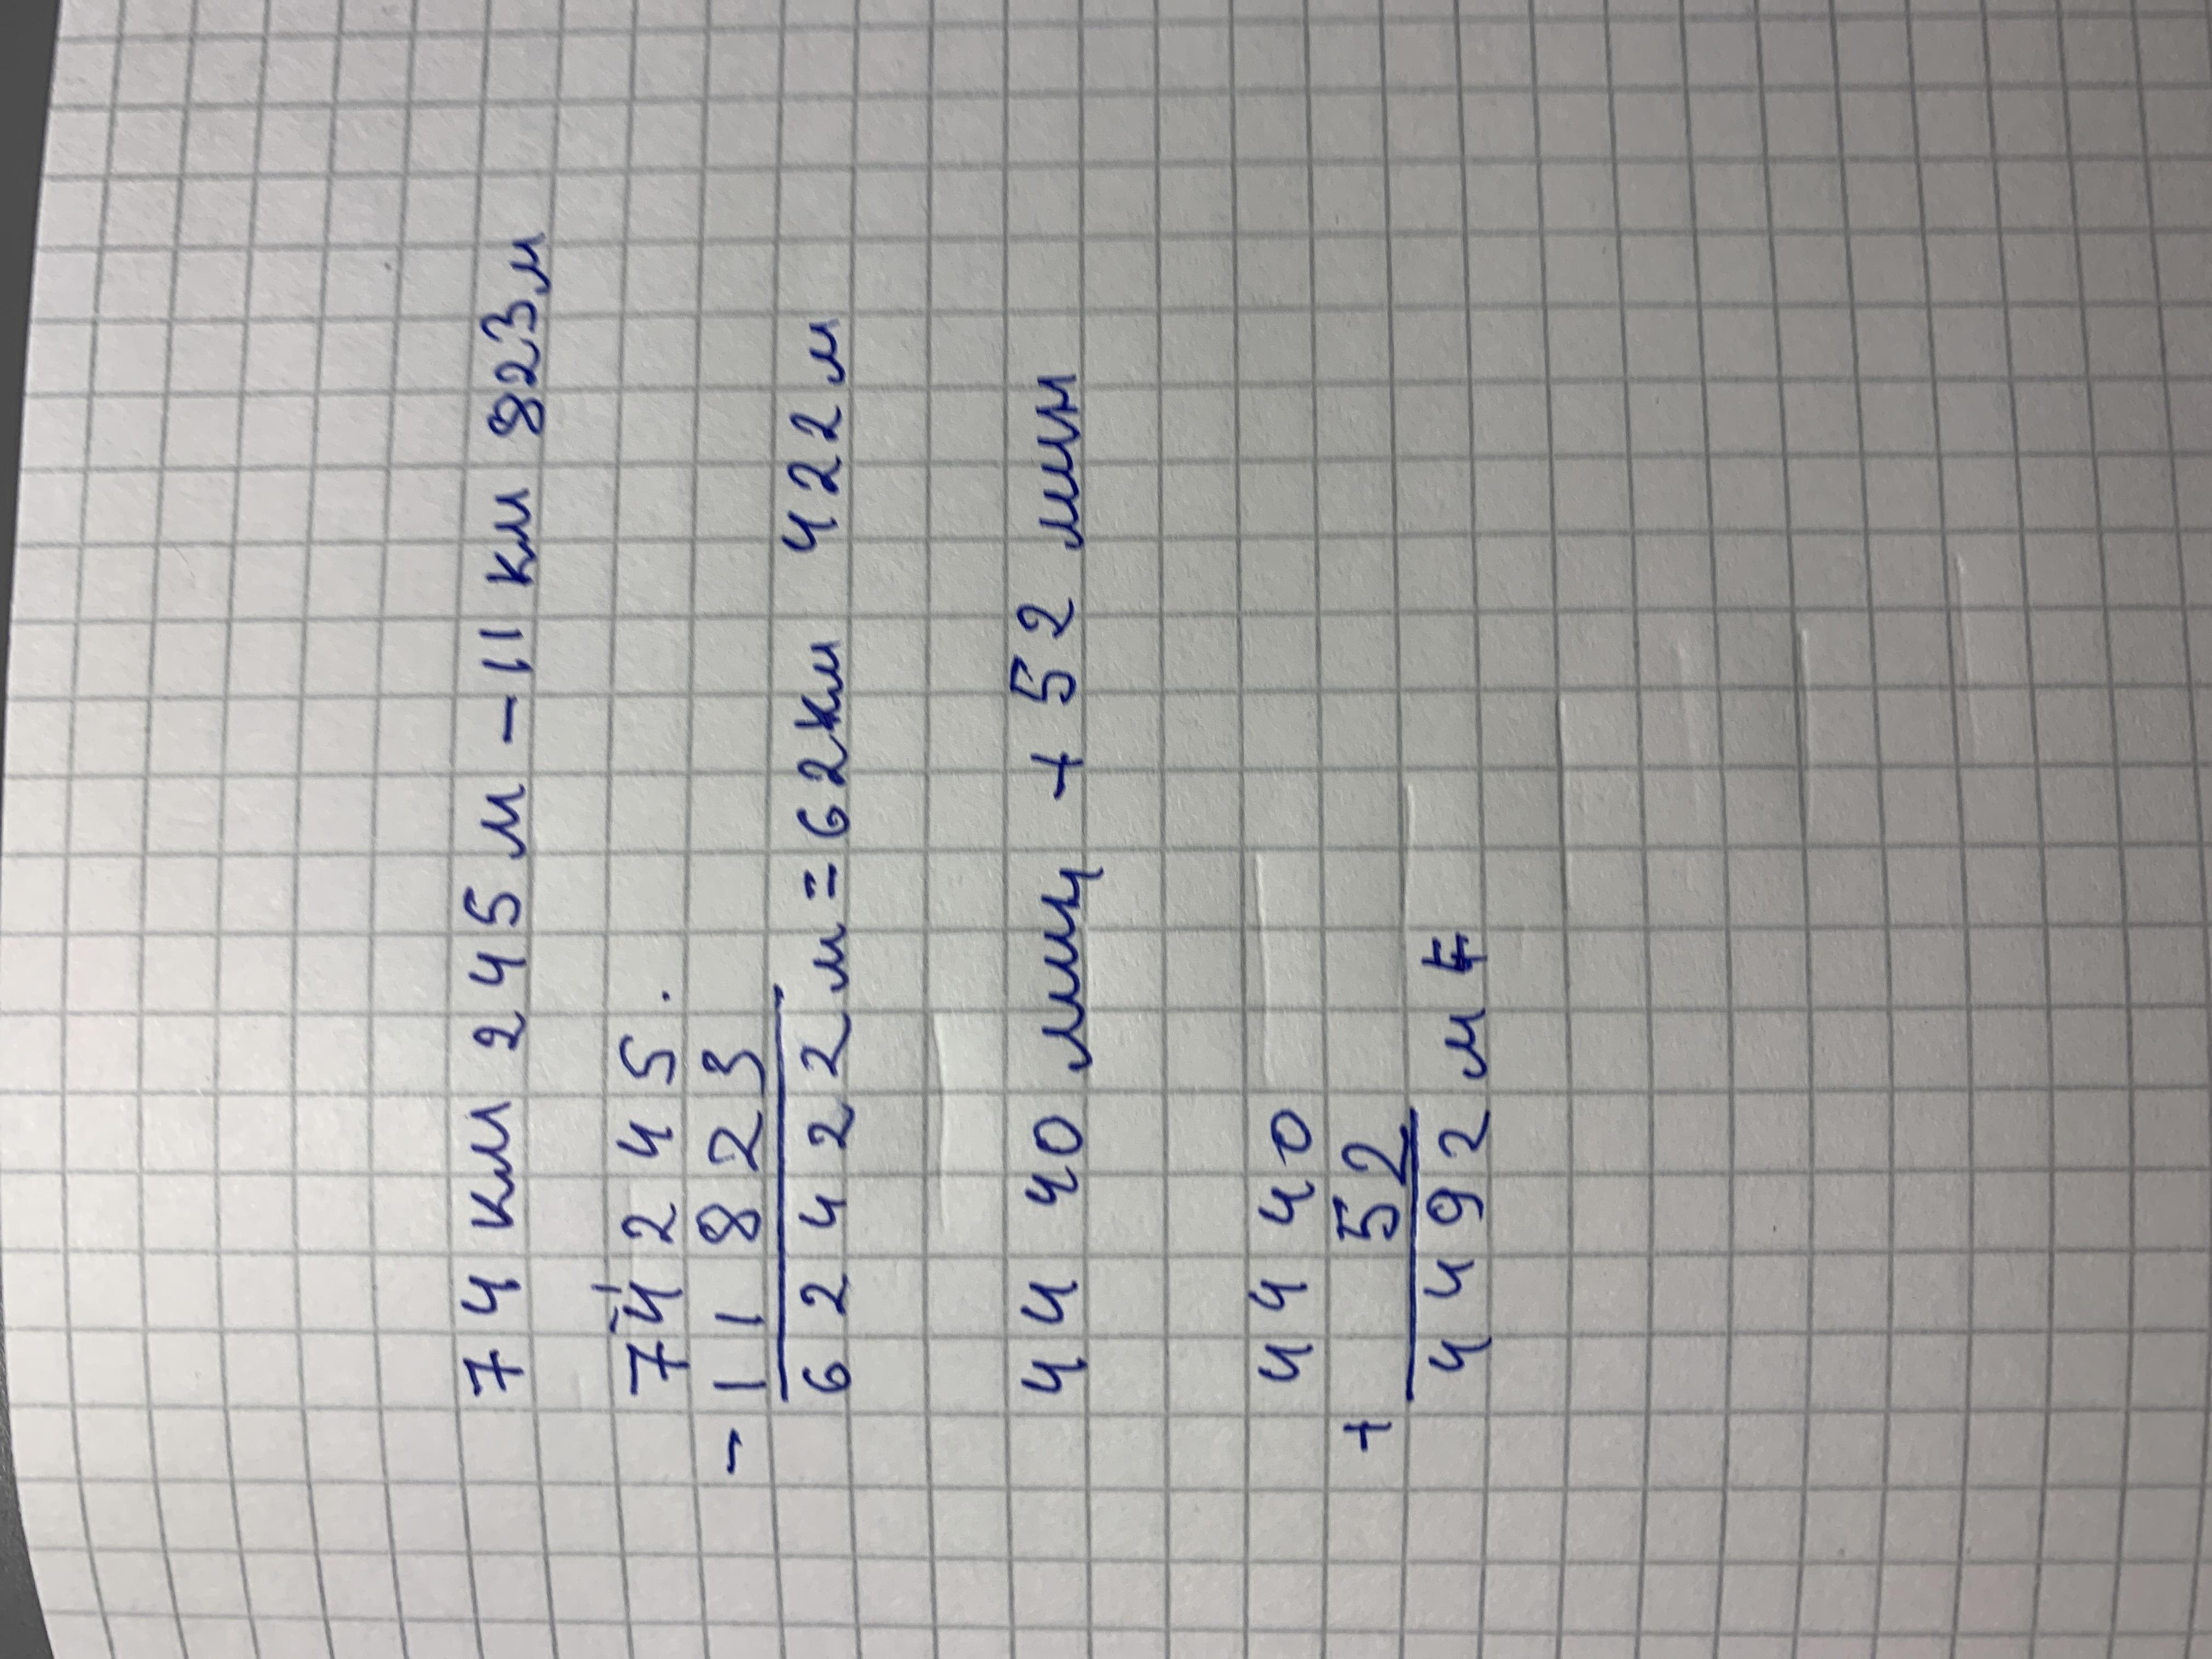 74 км 245 м - 11 км 823 м
74 2 4 5 .
- 1 1 8 2 3
6 2 4 2 2 м = 62 км 422 м
44 40 мин + 52 мин
4 4 4 0
+ 52
4 4 9 2 м